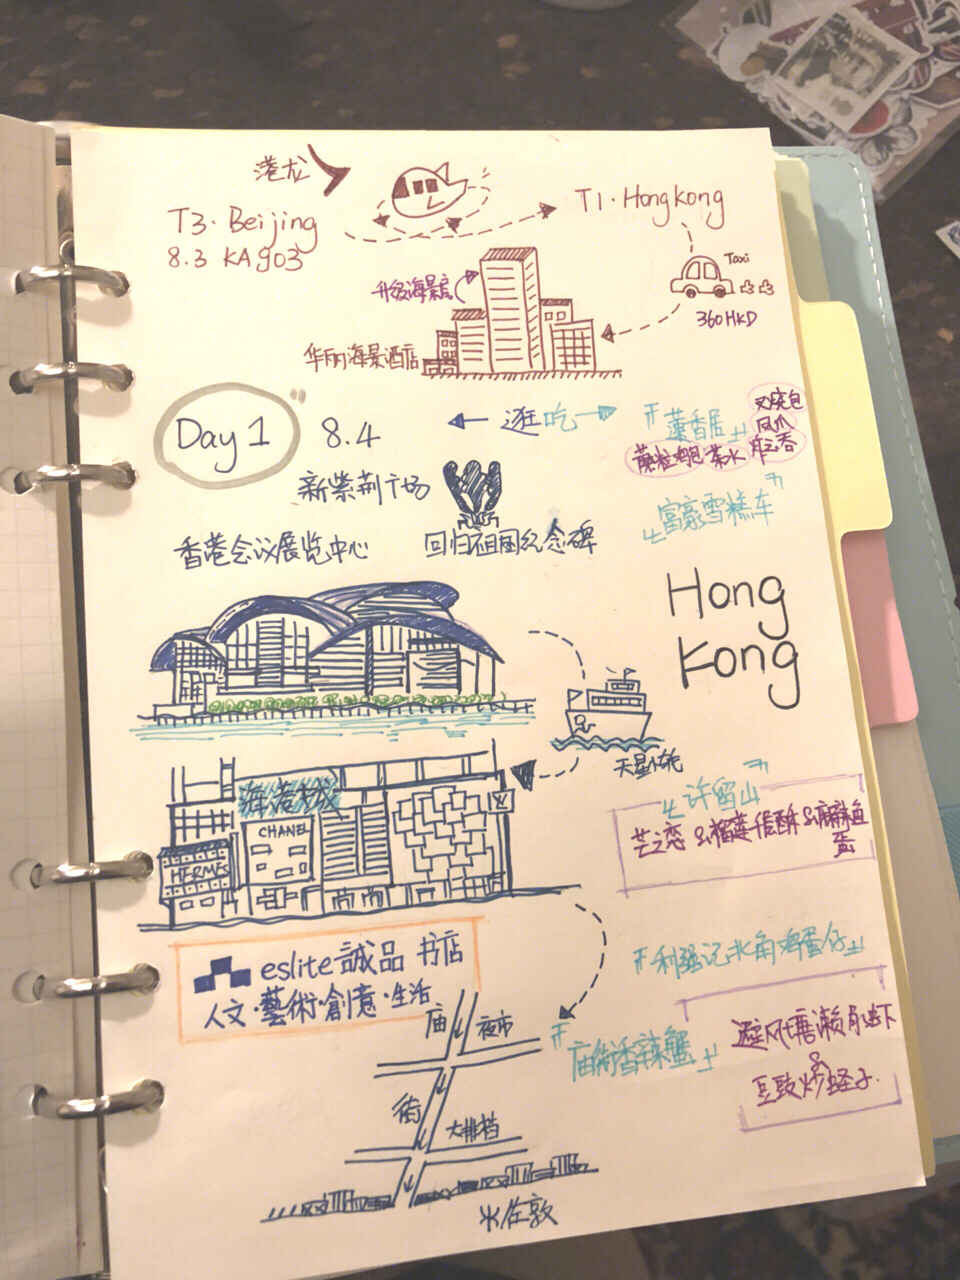 港龙
T3·Beijing
8.3 KA903
T1·HongKong
Taxi
360HKD
升级海景房
华丽海景酒店
Day 1
8.4
逛吃
蓮香居
叉烧包
凤爪
茶水
新紫荆广场
富豪雪糕车
香港会议展览中心
回归祖国纪念碑
Hong
Kong
天星小轮
海港城
CHANEL
HERMES
许留山
芒之恋 & 榴莲班戟 & 麻辣鱼
蛋
eslite 誠品 书店
人文·藝術·創意·生活
利强记北角鸡蛋仔
庙
夜市
庙街香辣蟹
避风塘濑尿虾
&
豆豉炒蛏子
街
大排档
佐敦